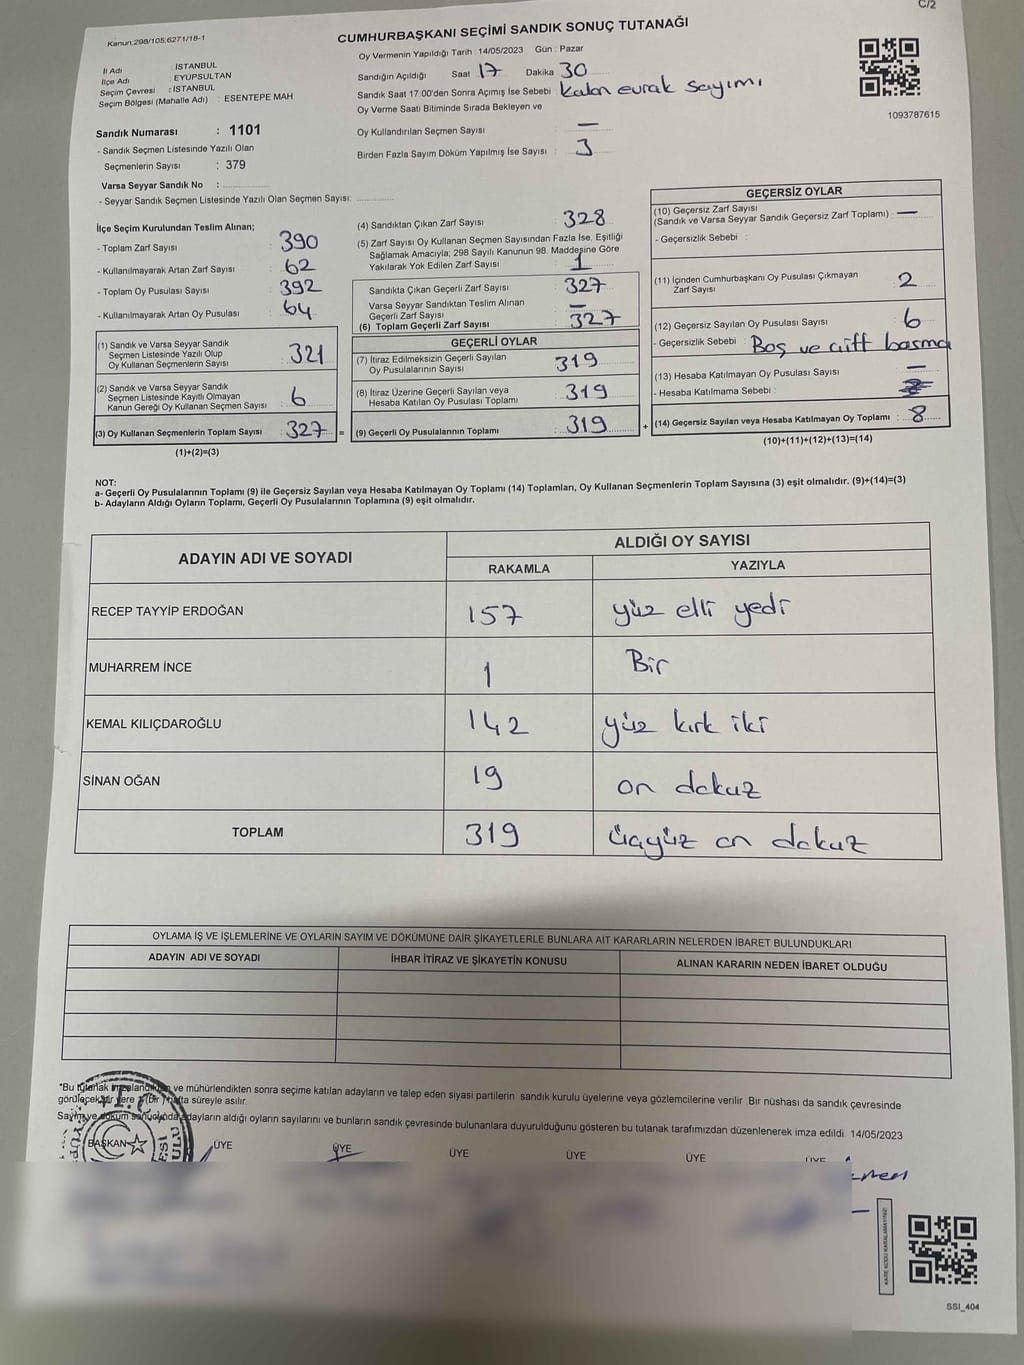 C/2
Kanun:298/105,6271/18-1
CUMHURBAŞKANI SEÇİMİ SANDIK SONUÇ TUTANAĞI
Oy Vermenin Yapıldığı Tarih : 14/05/2023 Gün : Pazar
İl Adı : İSTANBUL
İlçe Adı : EYÜPSULTAN
Seçim Çevresi : İSTANBUL
Seçim Bölgesi (Mahalle Adı) : ESENTEPE MAH
Sandığın Açıldığı Saat 17 Dakika 30
Sandık Saat 17.00'den Sonra Açımış İse Sebebi : kalan evrak sayımı
Oy Verme Saati Bitiminde Sırada Bekleyen ve
Oy Kullandırılan Seçmen Sayısı : —
Birden Fazla Sayım Döküm Yapılmış İse Sayısı : 3
1093787615
Sandık Numarası : 1101
- Sandık Seçmen Listesinde Yazılı Olan
Seçmenlerin Sayısı : 379
Varsa Seyyar Sandık No :
- Seyyar Sandık Seçmen Listesinde Yazılı Olan Seçmen Sayısı:
İlçe Seçim Kurulundan Teslim Alınan;
- Toplam Zarf Sayısı : 390
- Kullanılmayarak Artan Zarf Sayısı : 62
- Toplam Oy Pusulası Sayısı : 392
- Kullanılmayarak Artan Oy Pusulası : 64
(1) Sandık ve Varsa Seyyar Sandık
Seçmen Listesinde Yazılı Olup
Oy Kullanan Seçmen Sayısı : 321
(2) Sandık ve Varsa Seyyar Sandık
Seçmen Listesinde Kayıtlı Olmayan
Kanun Gereği Oy Kullanan Seçmen Sayısı : 6
(3) Oy Kullanan Seçmenlerin Toplam Sayısı : 327 =
(1)+(2)=(3)
(4) Sandıktan Çıkan Zarf Sayısı : 328
(5) Zarf Sayısı Oy Kullanan Seçmen Sayısından Fazla İse, Eşitliği
Sağlamak Amacıyla; 298 Sayılı Kanunun 98. Maddesine Göre
Yakılarak Yok Edilen Zarf Sayısı : 1
Sandıkta Çıkan Geçerli Zarf Sayısı : 327
Varsa Seyyar Sandıktan Teslim Alınan
Geçerli Zarf Sayısı : —
(6) Toplam Geçerli Zarf Sayısı : 327
GEÇERLİ OYLAR
(7) İtiraz Edilmeksizin Geçerli Sayılan
Oy Pusulalarının Sayısı : 319
(8) İtiraz Üzerine Geçerli Sayılan veya
Hesaba Katılan Oy Pusulası Toplamı : 319
(9) Geçerli Oy Pusulalarının Toplamı : 319 +
GEÇERSİZ OYLAR
(10) Geçersiz Zarf Sayısı
(Sandık ve Varsa Seyyar Sandık Geçersiz Zarf Toplamı) : —
- Geçersizlik Sebebi :
(11) İçinden Cumhurbaşkanı Oy Pusulası Çıkmayan
Zarf Sayısı : 2
(12) Geçersiz Sayılan Oy Pusulası Sayısı : 6
- Geçersizlik Sebebi : Boş ve çift basma
(13) Hesaba Katılmayan Oy Pusulası Sayısı : —
- Hesaba Katılmama Sebebi :
(14) Geçersiz Sayılan veya Hesaba Katılmayan Oy Toplamı : 8
(10)+(11)+(12)+(13)=(14)
NOT:
a- Geçerli Oy Pusulalarının Toplamı (9) ile Geçersiz Sayılan veya Hesaba Katılmayan Oy Toplamı (14) Toplamları, Oy Kullanan Seçmenlerin Toplam Sayısına (3) eşit olmalıdır. (9)+(14)=(3)
b- Adayların Aldığı Oyların Toplamı, Geçerli Oy Pusulalarının Toplamına (9) eşit olmalıdır.
ADAYIN ADI VE SOYADI
ALDIĞI OY SAYISI
RAKAMLA YAZIYLA
RECEP TAYYİP ERDOĞAN 157 yüz elli yedi
MUHARREM İNCE 1 Bir
KEMAL KILIÇDAROĞLU 142 yüz kırk iki
SİNAN OĞAN 19 on dokuz
TOPLAM 319 üçyüz on dokuz
OYLAMA İŞ VE İŞLEMLERİNE VE OYLARIN SAYIM VE DÖKÜMÜNE DAİR ŞİKAYETLERLE BUNLARA AİT KARARLARIN NELERDEN İBARET BULUNDUKLARI
ADAYIN ADI VE SOYADI İHBAR İTİRAZ VE ŞİKAYETİN KONUSU ALINAN KARARIN NEDEN İBARET OLDUĞU
*Bu tutanak imzalandıktan ve mühürlendikten sonra seçime katılan adayların ve talep eden siyasi partilerin sandık kurulu üyelerine veya gözlemcilerine verilir. Bir nüshası da sandık çevresinde
görülecek bir yere 1 (bir) hafta süreyle asılır.
Sayım ve döküm sonucunda adayların aldığı oyların sayılarını ve bunların sandık çevresinde bulunanlara duyurulduğunu gösteren bu tutanak tarafımızdan düzenlenerek imza edildi. 14/05/2023
BAŞKAN ÜYE ÜYE ÜYE ÜYE ÜYE ÜYE
T.C.
KARE KODU KARALAMAYINIZ!
SSI_404